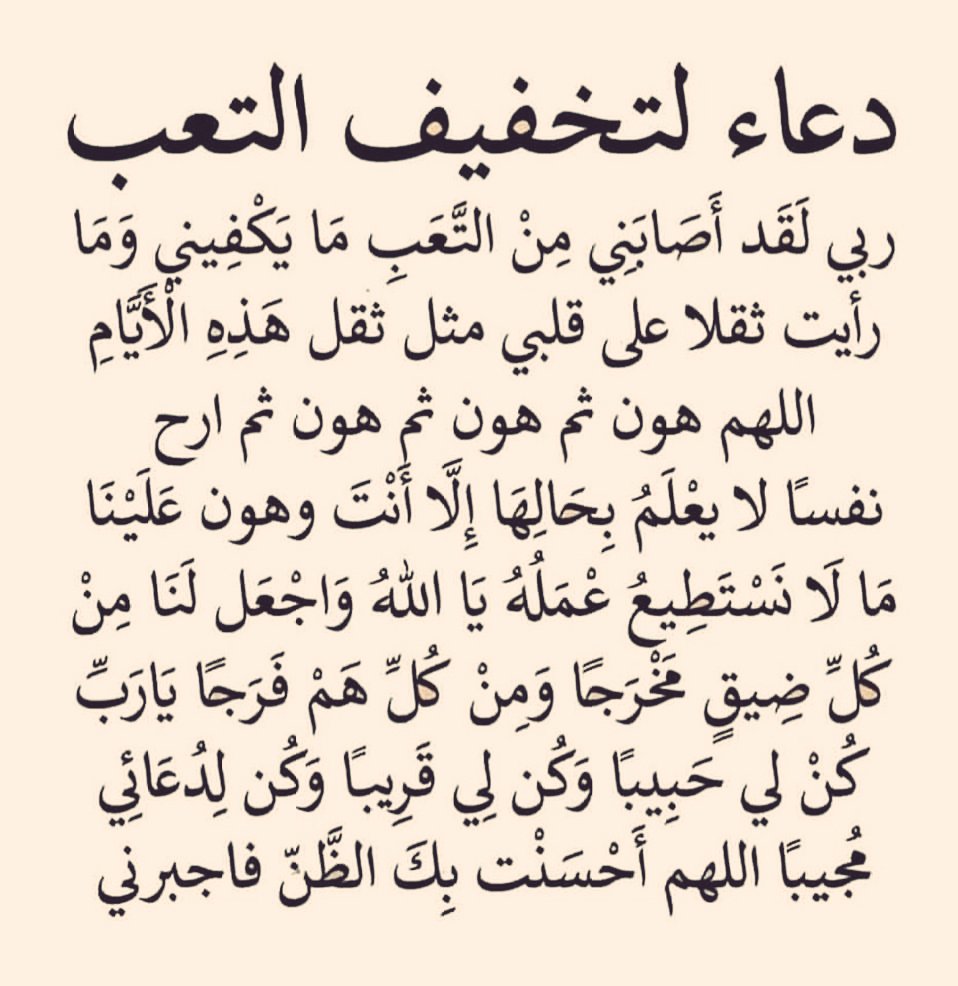 دعاء لتخفيف التعب
ربي لَقَد أَصَابَنِي مِنْ التَّعَبِ مَا يَكْفِيني وَمَا
رأيت ثقلا على قلبي مثل ثقل هَذِهِ الْأَيَّامِ
اللهم هون ثم هون ثم هون ثم ارح
نفسًا لا يعْلَمُ بِحَالِهَا إِلَّا أَنْتَ وهون عَلَيْنَا
مَا لَا نَسْتَطِيعُ عْمَلُهُ يَا اللهُ وَاجْعَل لَنَا مِنْ
كُلِّ ضِيقٍ مَخْرَجًا وَمِنْ كُلِّ هَمْ فَرَجًا يَارَبِّ
كُنْ لي حَبِيبًا وَكُن لِي قَرِيبًا وَكُن لِدُعَائِي
مُجيبًا اللهم أَحْسَنْت بِكَ الظَّنّ فاجبرني